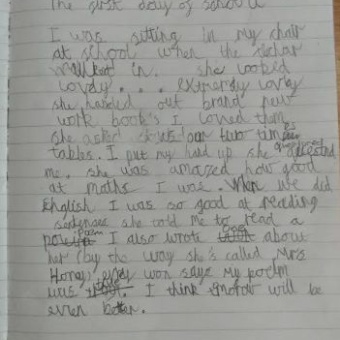 The first day of school
I was sitting in my chair
at school when the
walked in. she looked
lovely... extremely lovey
she handed out brand new
work book's I loved them
she asked us our two times
tables. I put my hand up she
me. she was amazed how good
at maths I was. When we did
English I was so good at reading
sentences she told me to read a
poem I also wrote about
her (by the way she's called Mrs
Honey) evey won says my poem
was. I think will be
even better.